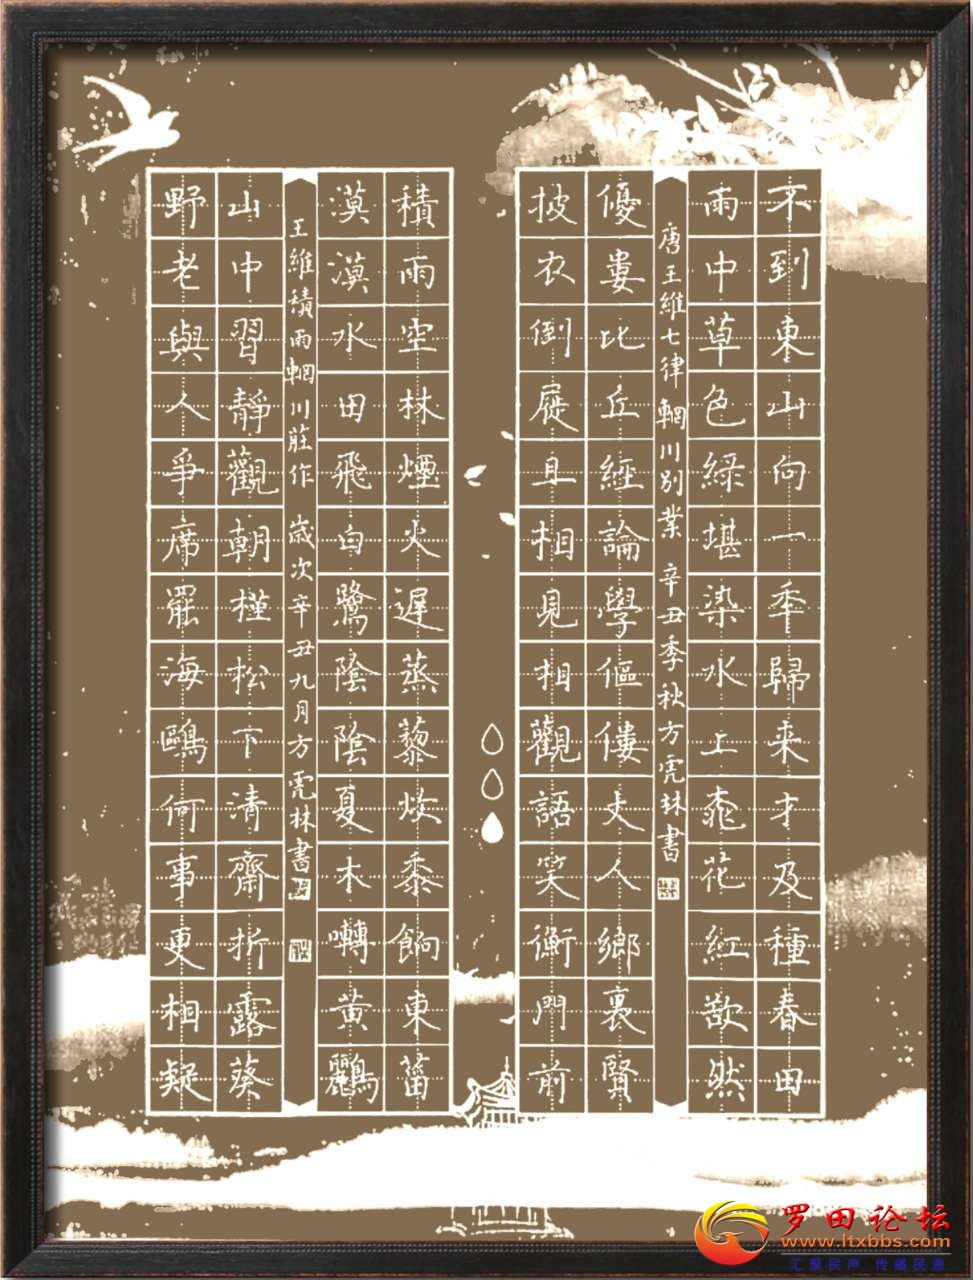 不到東山向一秊歸来才及種春田
雨中草色綠堪染水上桃花紅欲然
唐王維七律輞川別業 辛丑季秋方虎林書
優婁比丘經論學傴僂丈人鄉裏賢
披衣倒屣且相見相觀語笑衡門前
積雨空林煙火遲蒸藜炊黍餉東菑
漠漠水田飛白鷺陰陰夏木囀黃鸝
王維積雨輞川莊作 歲次辛丑九月方虎林書
山中習靜觀朝槿松下清齋折露葵
野老與人爭席罷海鷗何事更相疑
罗田论坛
www.ltxbbs.com
汇聚民声 传播民意